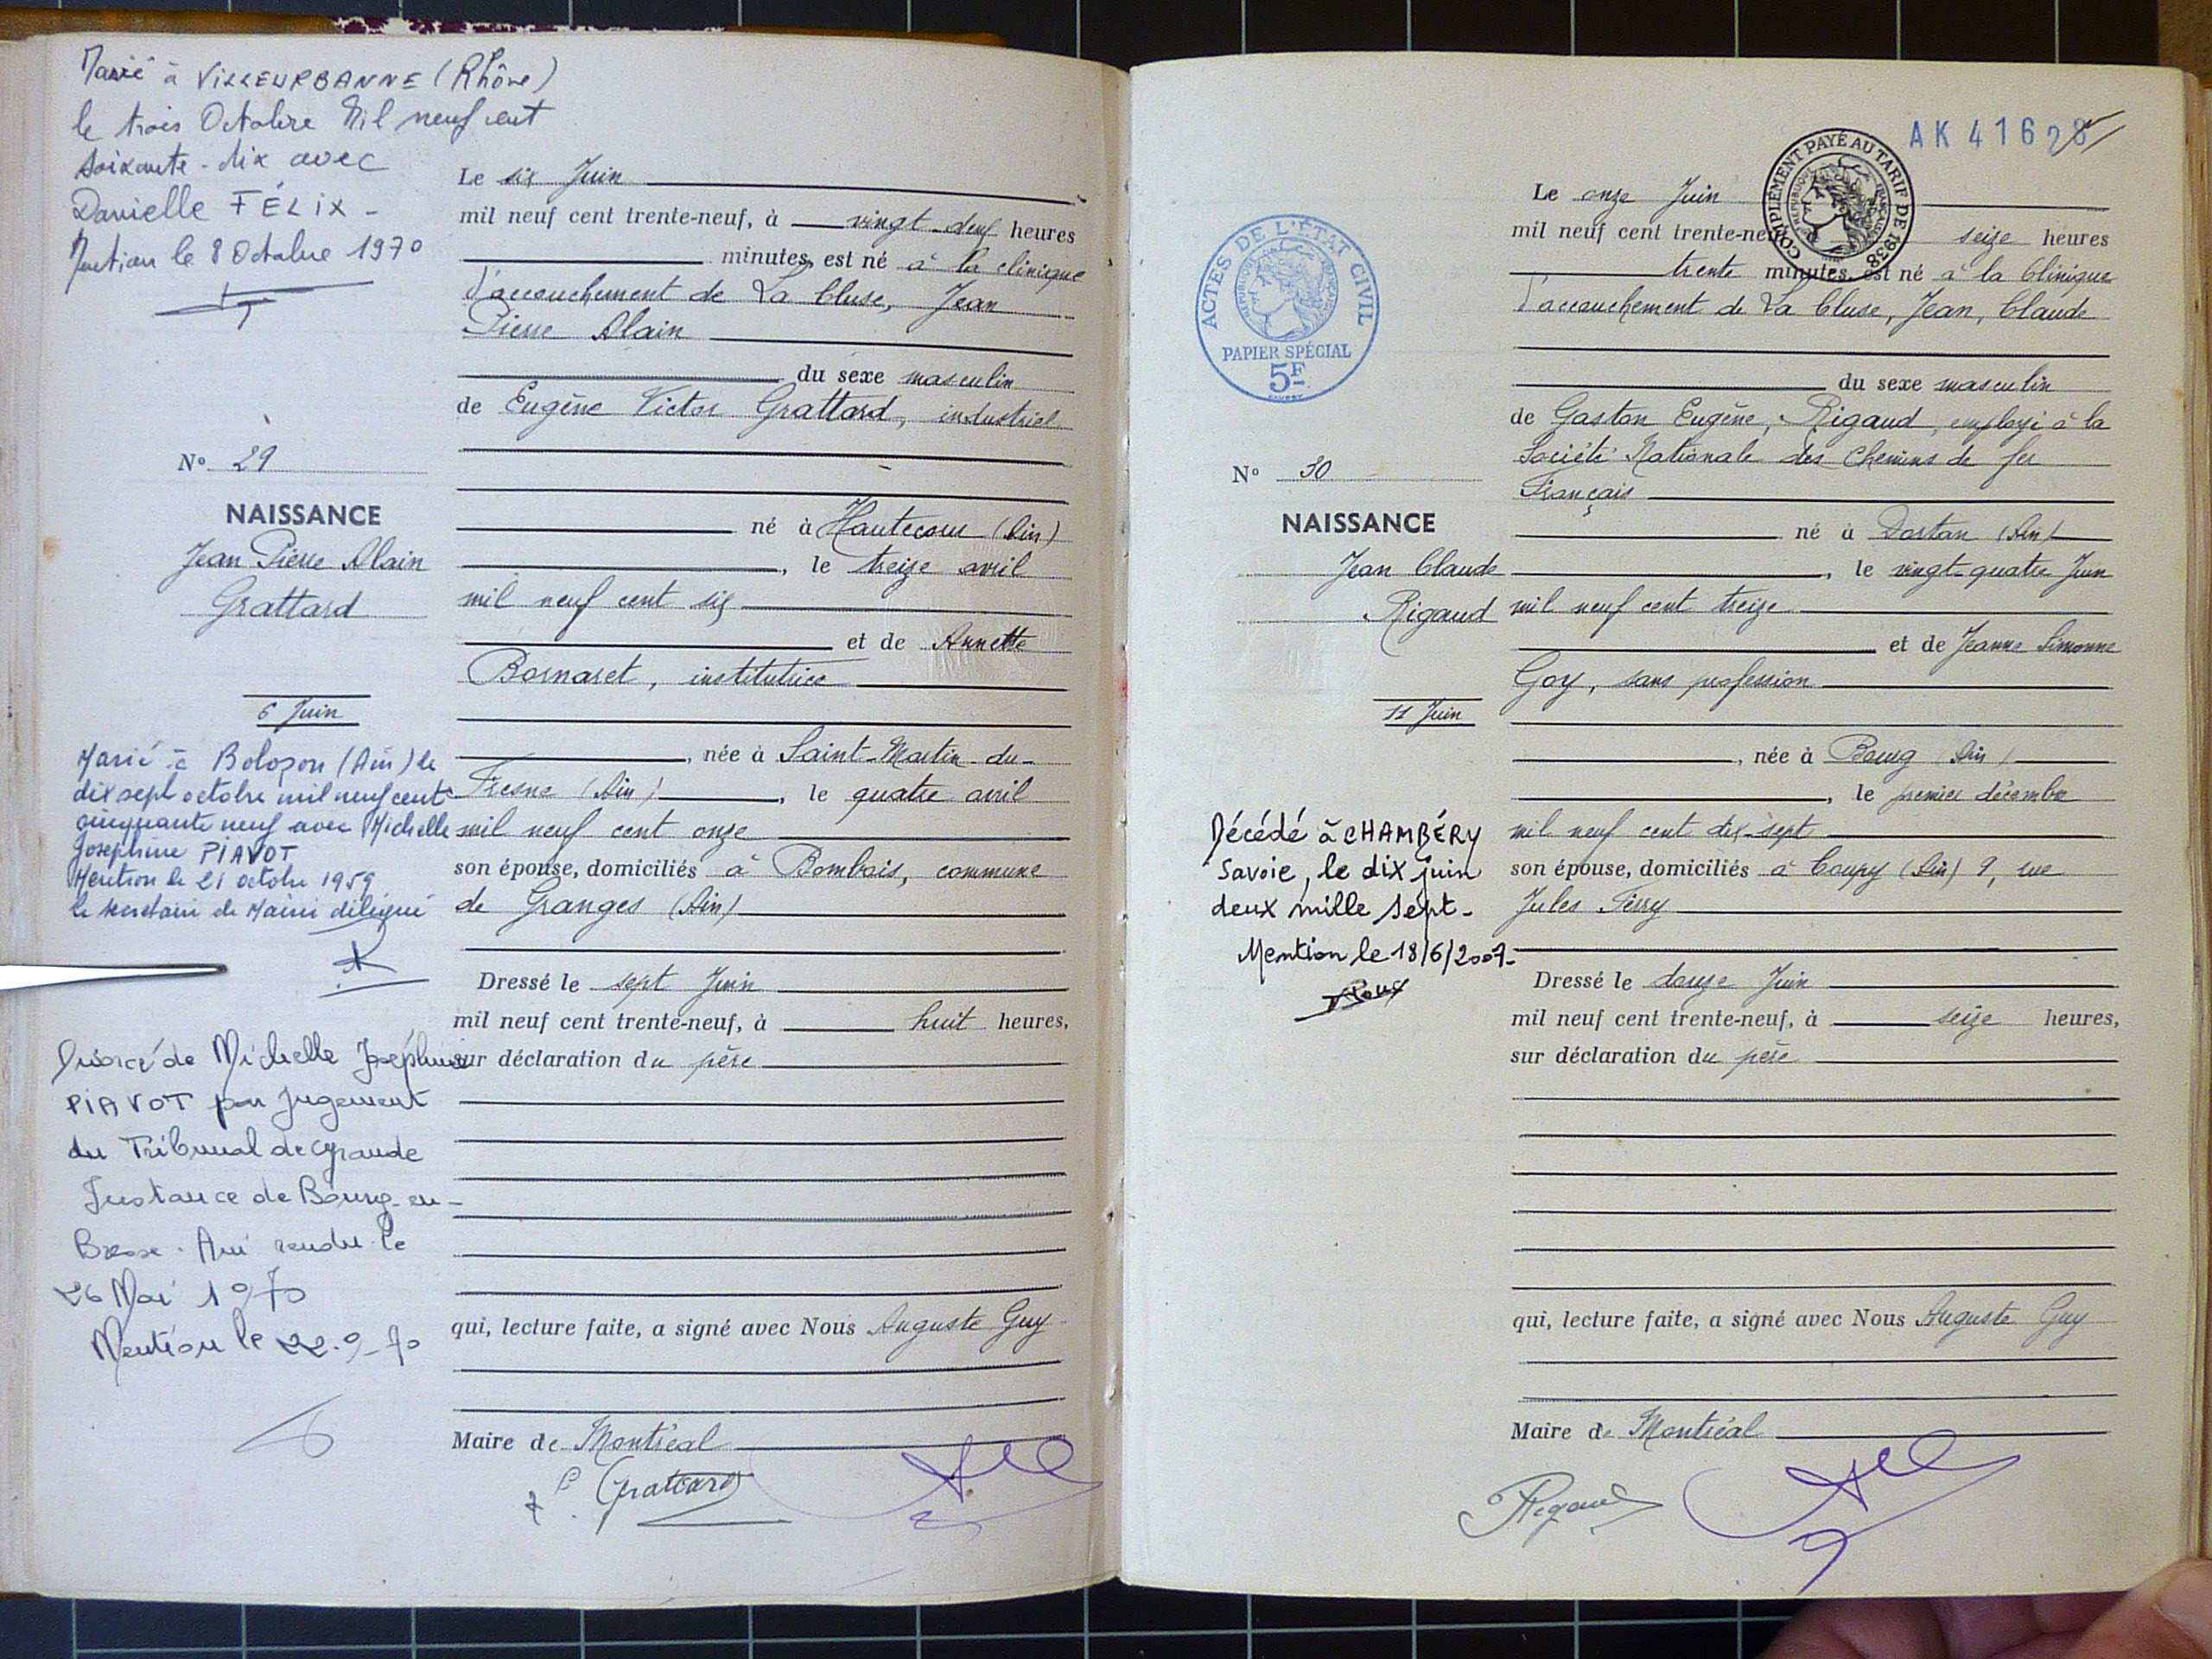 Marié à VILLEURBANNE (Rhône)
le trois Octobre Mil neuf cent
soixante-dix avec
Danielle FÉLIX -
Mention le 8 Octobre 1970
Nº 29
NAISSANCE
Jean Pierre Alain
Grattard
6 Juin
Marié à Bolozon (Ain) le
dix sept octobre mil neuf cent
cinquante neuf avec Michelle
Joséphine PIAVOT
Mention le 21 octobre 1959
le secrétaire de Mairie délégué
Divorcé de Michelle Joséphine
PIAVOT par jugement
du Tribunal de Grande
Instance de Bourg-en-
Bresse . Ain rendu le
26 Mai 1970
Mention le 22.9-70
Le six Juin
mil neuf cent trente-neuf, à vingt-deux heures
minutes, est né à la clinique
d'accouchement de La Cluse, Jean
Pierre Alain
du sexe masculin
de Eugène Victor Grattard, industriel
né à Hautecour (Ain)
, le treize avril
mil neuf cent six
et de Annette
Bornaret, institutrice
, née à Saint-Martin-du-
Fresne (Ain) , le quatre avril
mil neuf cent onze
son épouse, domiciliés à Bombois, commune
de Granges (Ain)
Dressé le sept Juin
mil neuf cent trente-neuf, à huit heures,
sur déclaration du père
qui, lecture faite, a signé avec Nous Auguste Guy
Maire de Montréal
Grattard
AK 41628
COMPLÉMENT PAYÉ AU TARIF DE 1938
RÉPUBLIQUE FRANÇAISE
ACTES DE L'ÉTAT CIVIL
RÉPUBLIQUE FRANÇAISE
PAPIER SPÉCIAL
5F
Nº 30
NAISSANCE
Jean Claude
Rigaud
11 Juin
Décédé à CHAMBÉRY
Savoie, le dix juin
deux mille sept-
Mention le 18/6/2007-
Le onze Juin
mil neuf cent trente-neuf, à seize heures
trente minutes, est né à la Clinique
d'accouchement de La Cluse, Jean, Claude
du sexe masculin
de Gaston Eugène, Rigaud, employé à la
Société Nationale des Chemins de fer
Français
né à Dortan (Ain)
, le vingt-quatre Juin
mil neuf cent treize
et de Jeanne Simonne
Goy, sans profession
, née à Bourg (Ain)
, le premier décembre
mil neuf cent dix-sept
son épouse, domiciliés à Coupy (Ain) 9, rue
Jules Ferry
Dressé le douze Juin
mil neuf cent trente-neuf, à seize heures,
sur déclaration du père
qui, lecture faite, a signé avec Nous Auguste Guy
Maire de Montréal
Rigaud